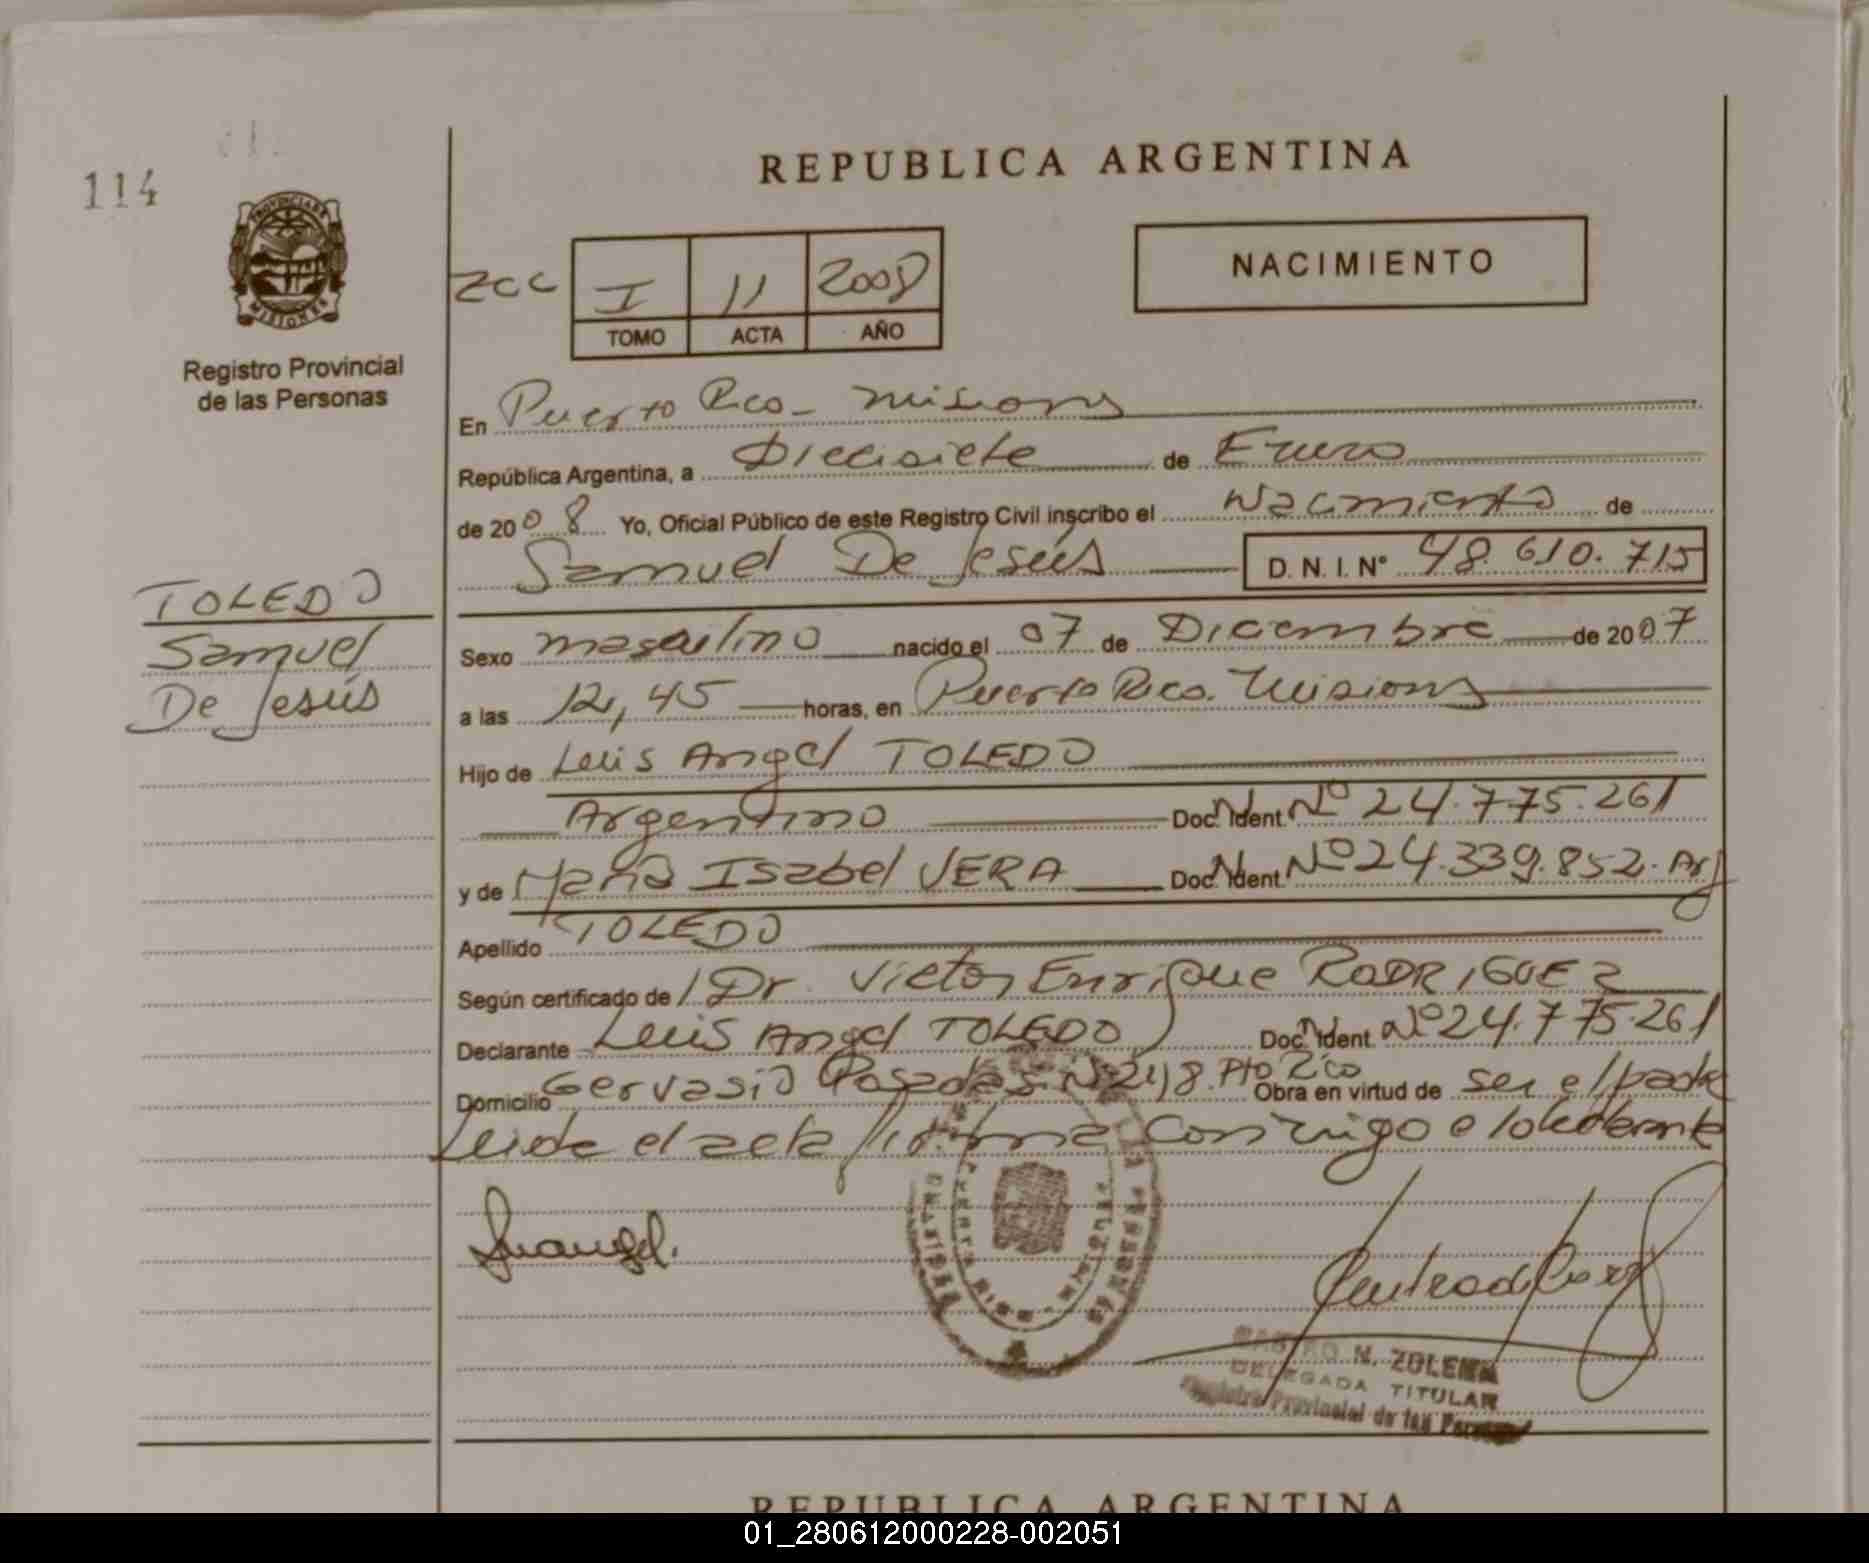 114
PROVINCIA DE
MISIONES
Registro Provincial
de las Personas
TOLEDO
Samuel
De Jesús
REPUBLICA ARGENTINA
NACIMIENTO
I 11 2008
TOMO ACTA AÑO
En Puerto Rico - Misiones
República Argentina, a Diecisiete de Enero
de 2008 Yo, Oficial Público de este Registro Civil inscribo el Nacimiento de
Samuel De Jesús D. N. I. Nº 48.610.715
Sexo masculino nacido el 07 de Diciembre de 2007
a las 12,45 horas, en Puerto Rico. Misiones
Hijo de Luis Angel TOLEDO
Argentino Doc. Ident. Nº 24.775.261
y de María Isabel VERA Doc. Ident. Nº 24.339.852. Arg
Apellido TOLEDO
Según certificado de Dr. Victor Enrique RODRIGUEZ
Declarante Luis Angel TOLEDO Doc. Ident. Nº 24.775.261
Domicilio Gervasio Posadas Pto Rico Obra en virtud de ser el padre
Leida el acta firma conmigo el declarante
N. ZULEMA
DELEGADA TITULAR
Registro Provincial de las Personas
REPUBLICA ARGENTINA
01_280612000228-002051